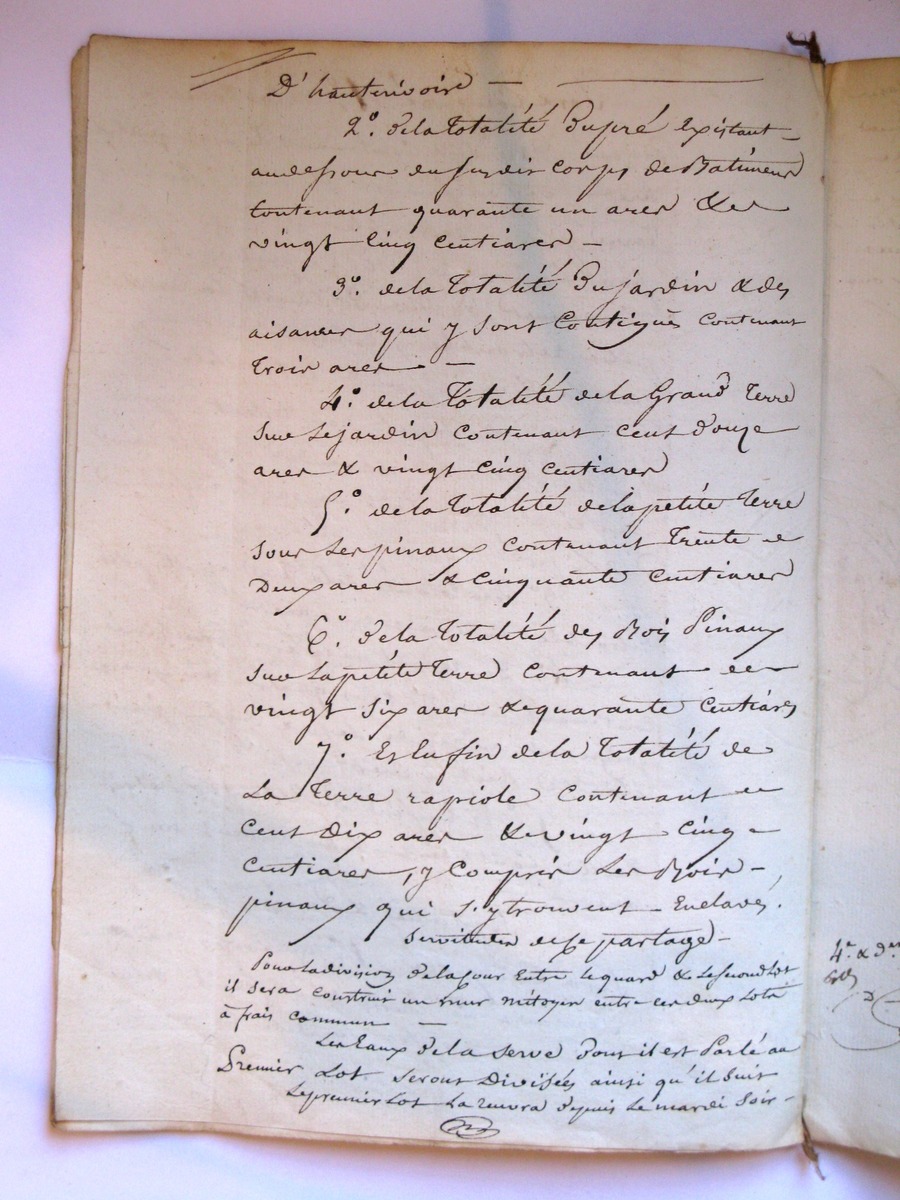 D'hauterivoire —
2°. de la Totalité Du pré Existant
au dessous du susdit Corps de Batiment
Contenant quarante un ares &
vingt Cinq Centiares —
3°. de la Totalité Du jardin & des
aisances qui y sont Contigues Contenant
Trois ares —
4°. de la Totalité de la Grand Terre
sur Le jardin Contenant Cent douze
ares & vingt Cinq Centiares
5°. de la Totalité de la petite Terre
sous Les pinaux Contenant Trente
Deux ares & Cinquante Centiares
6°. de la Totalité des Bois Pinaux
sur La petite Terre Contenant
vingt six ares & quarante Centiares
7°. Et Enfin de la Totalité de
La Terre rapiole Contenant
Cent Dix ares & vingt Cinq
Centiares, y Compris Les Bois
pinaux qui s'y trouvent Enclavés.
Servitudes de Ce partage —
Pour La division de la Cour Entre Le quard & Le second Lot
il sera Construit un mur mitoyen entre ces deux Lots
à frais Commun —
Les Eaux de la serve dont il est Parlé au
Premier Lot seront Divisées ainsi qu'il suit
Le premier Lot La prendra depuis Le mardi soir —
4e & der